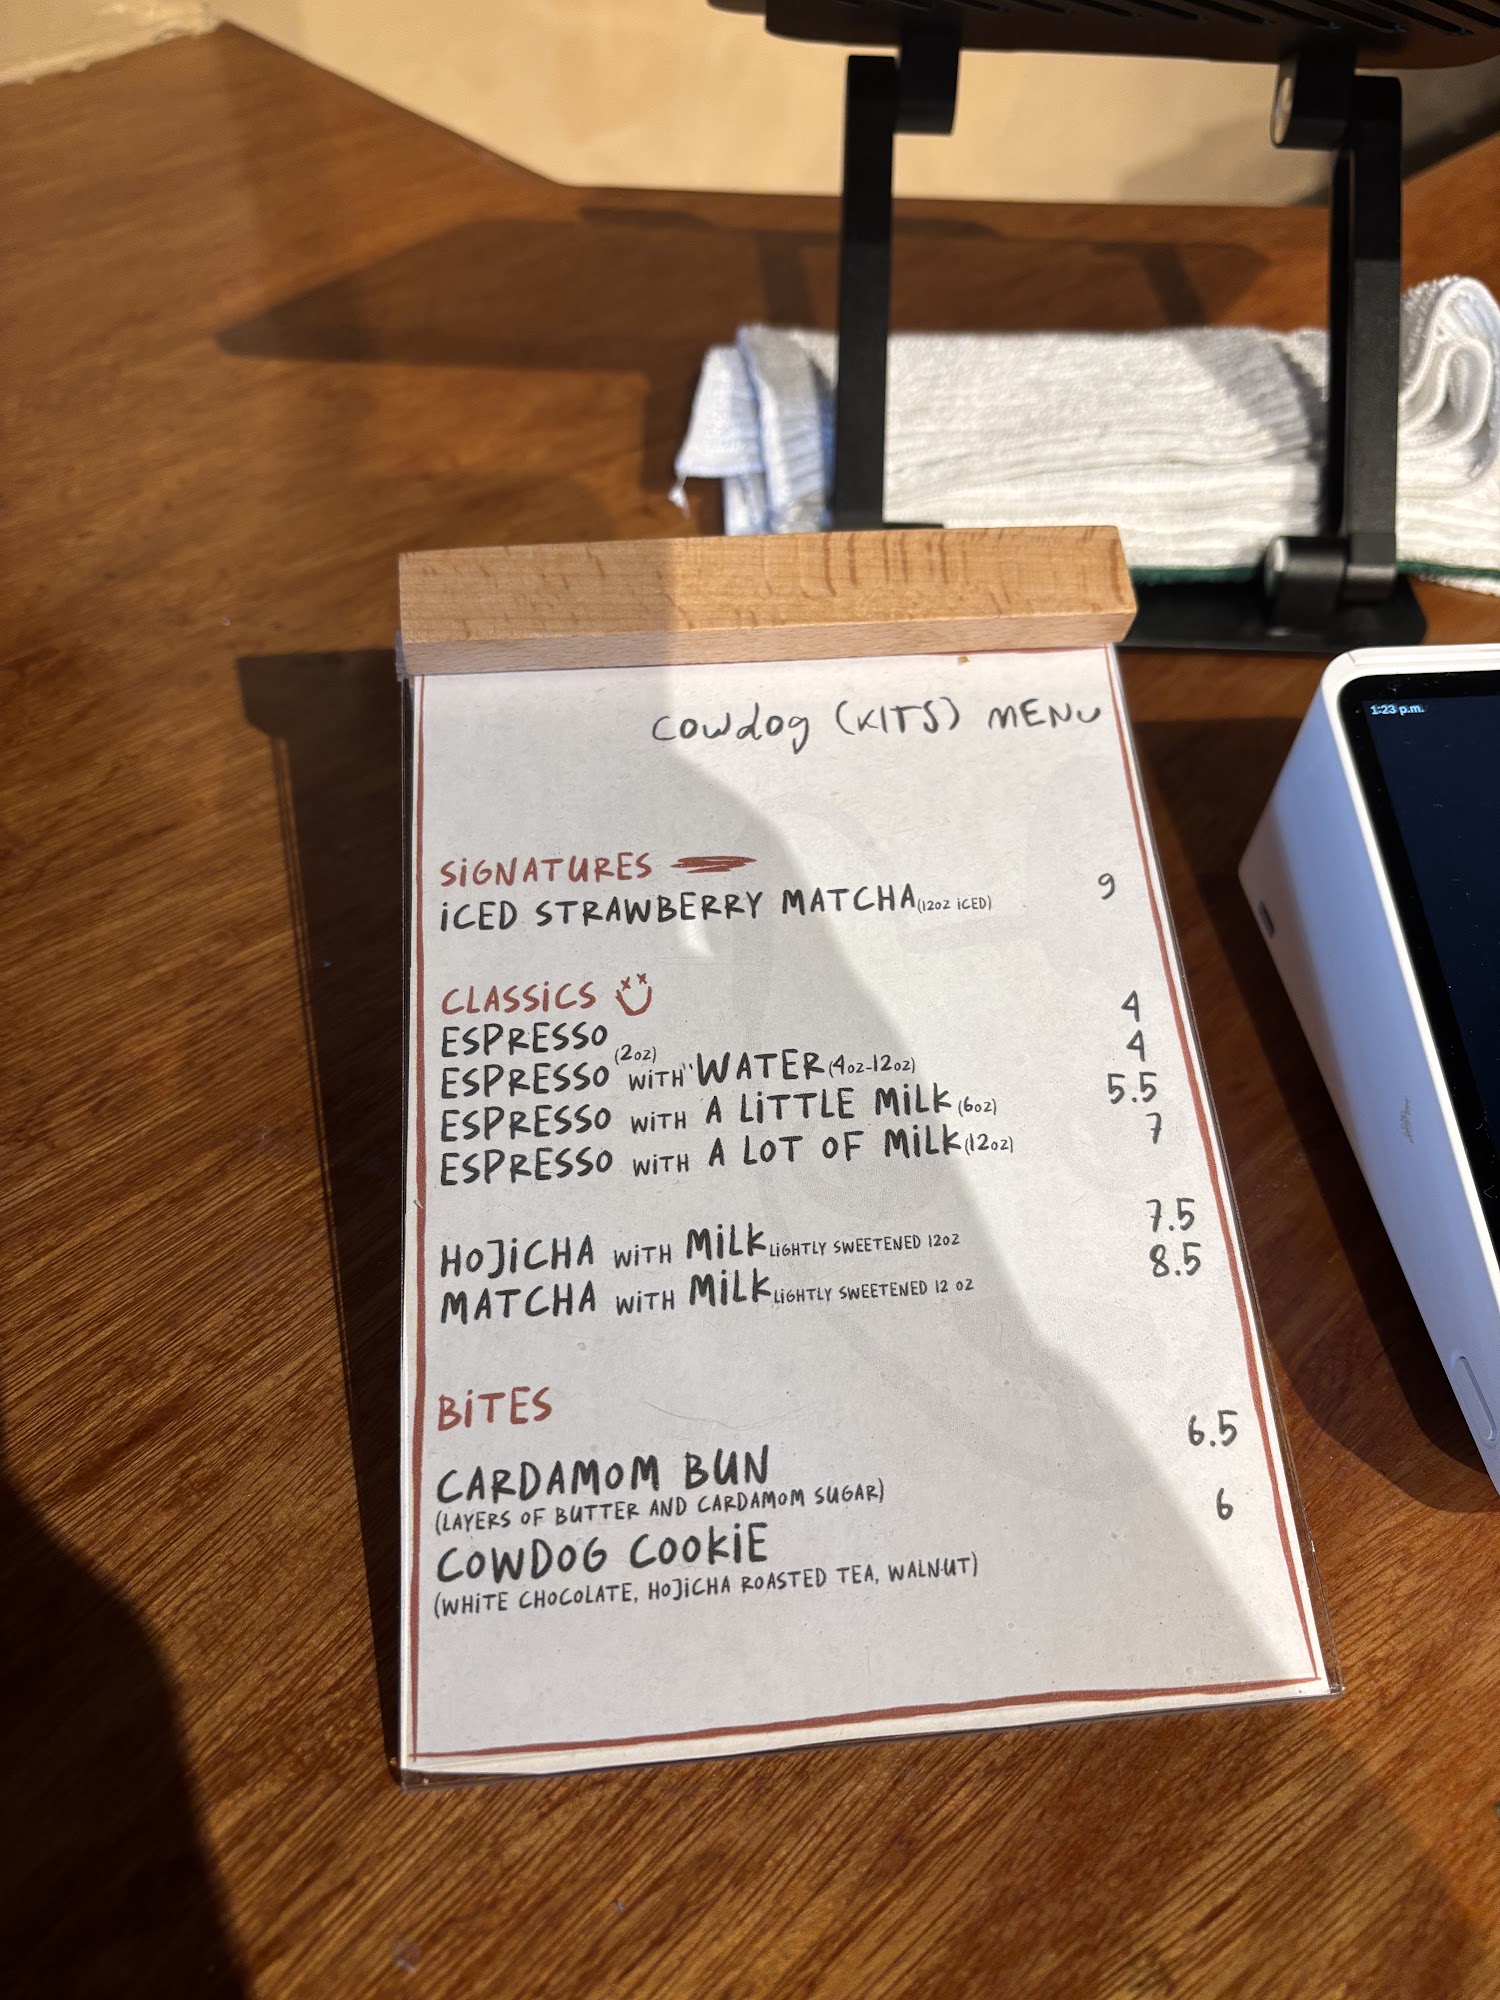 cowdog (KITS) MENU
SiGNATURES
iCED STRAWBERRY MATCHA (12OZ iCED) 9
CLASSiCS
ESPRESSO (2oz) 4
ESPRESSO WiTH "WATER (4oz-12oz) 4
ESPRESSO WiTH A LiTTLE MiLK (6oz) 5.5
ESPRESSO WiTH A LOT OF MiLK (12oz) 7
HOJiCHA WiTH MiLK LiGHTLY SWEETENED 12OZ 7.5
MATCHA WiTH MiLK LiGHTLY SWEETENED 12 OZ 8.5
BiTES
CARDAMOM BUN 6.5
(LAYERS OF BUTTER AND CARDAMOM SUGAR)
COWDOG COOKiE 6
(WHiTE CHOCOLATE, HOJiCHA ROASTED TEA, WALNUT)
1:23 p.m.